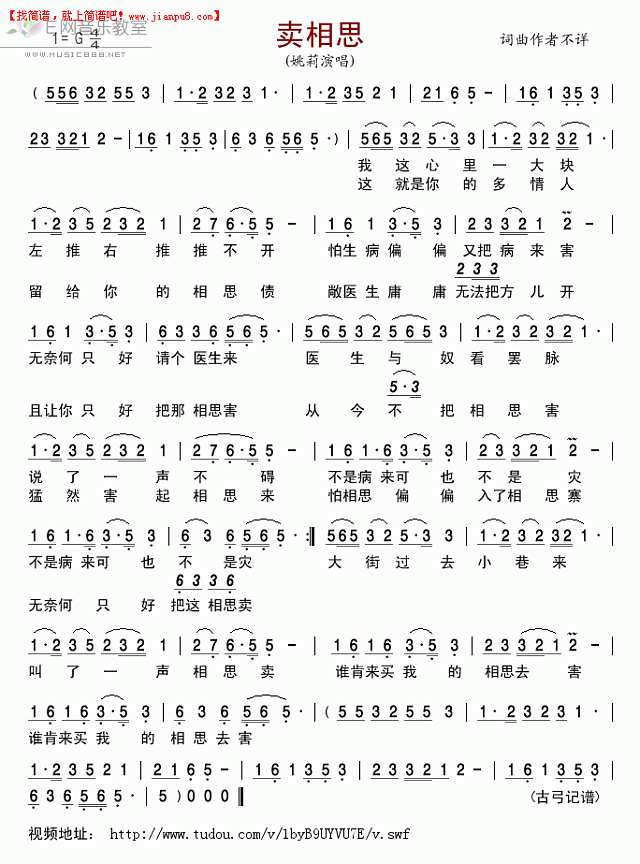 【找简谱,就上简谱吧!】www.jianpu8.com
网音乐教室
WWW.MUSIC888.NET
1=G 4/4
卖相思
(姚莉演唱)
词曲作者不详
( 5 5 6 3 2 5 5 3 | 1·2 3 2 3 1· | 1·2 3 5 2 1 2 | 2 1 6 5 - | 1 6 1 3 5 3 |
2 3 3 2 1 2 - | 1 6 1 3 5 3 | 6 3 6 5 6 5 ·) | 5 6 5 3 2 5·3 3 | 1·2 3 2 3 2 1· |
我 这 心 里 一 大 块
这 就 是 你 的 多 情 人
1·2 3 5 2 3 2 1 | 2 7 6·5 5 - | 1 6 1 3·5 3 | 2 3 2 3 2 1 2 - |
左 推 右 推 推 不 开 怕生 病 偏 偏 又把 病 来 害
2 3 3·3
留 给 你 的 相 思 债 敞医 生 庸 庸 无法把方 儿 开
1 6 1 3·5 3 | 6 3 3 6 5 6 5· | 5 6 5 3 2 5·3 3 | 1·2 3 2 3 2 1· |
无奈何 只 好 请个 医生来 医 生 与 奴 看 罢 脉
5·3
且让你 只 好 把那 相思害 从 今 不 把 相 思 害
1·2 3 5 2 3 2 1 | 2 7 6·5 5 - | 1 6 1·6 3·5 3 | 2 3 3 2 1 2 - |
说 了 一 声 不 碍 不是 病 来可 也 不 是 灾
猛 然 害 起 相 思 来 怕相 思 偏 偏 入了 相 思 寨
1 6 1·6 3·5 3 | 6 3 6 5 6 5· :‖ 5 6 5 3 2 5·3 3 | 1·2 3 2 3 2 1· |
不是 病 来可 也 不 是灾 大 街 过 去 小 巷 来
6 3 3 6
无奈何 只 好 把这 相思卖
1·2 3 5 2 3 2 1 | 2 7 6·5 5 - | 1 6 1·6 3·5 3 | 2 3 3 2 1 2 - |
叫 了 一 声 相 思 卖 谁肯来买 我 的 相思去 害
1 6 1·6 3·5 3 | 6 3 6 5 6 5· | ( 5 5 3 2 5 5 3 | 1·2 3 2 3 1· |
谁肯来买 我 的 相思 去 害
1·2 3 5 2 1 2 | 2 1 6 5 - | 1 6 1 3 5 3 | 2 3 3 2 1 2 - | 1 6 1 3 5 3 |
6 3 6 5 6 5· | 5 ) 0 0 0 ‖
(古弓记谱)
视频地址: http://www.tudou.com/v/1byB9UYVU7E/v.swf